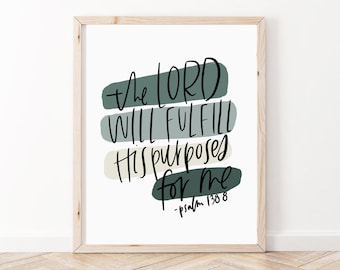 the LORD
WILL FULFILL
His purposes
for me
-psalm 138:8